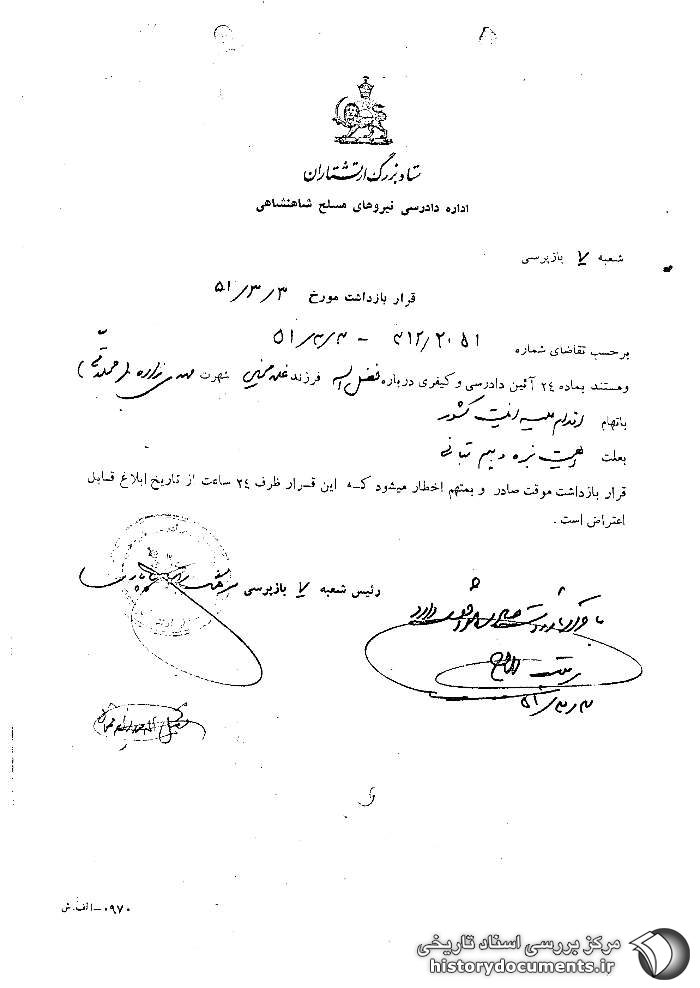 ستاد بزرگ ارتشتاران
اداره دادرسی نیروهای مسلح شاهنشاهی
شعبه ۷ بازپرسی
قرار بازداشت مورخ ۵۱/۳/۳
برحسب تقاضای شماره
ومستند بماده ۲٤ آئین دادرسی و کیفری درباره فضل اله فرزند غلامحسین شهرت مهدی زاده
باتهام اقدام علیه امنیت کشور
بعلت اهمیت بزه و بیم تبانی
قرار بازداشت موقت صادر و بمتهم اخطار میشود که این قرار ظرف ۲٤ ساعت از تاریخ ابلاغ قابل
اعتراض است .
رئیس شعبه ۷ بازپرسی سرهنگ
با قرار بازداشت صادره موافقت دارد
۰۹۷۰-الف.ش
مرکز بررسی اسناد تاریخی
historydocuments.ir